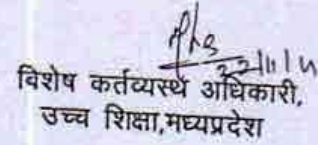 विशेष कर्तव्यस्थ अधिकारी,
उच्च शिक्षा,मध्यप्रदेश